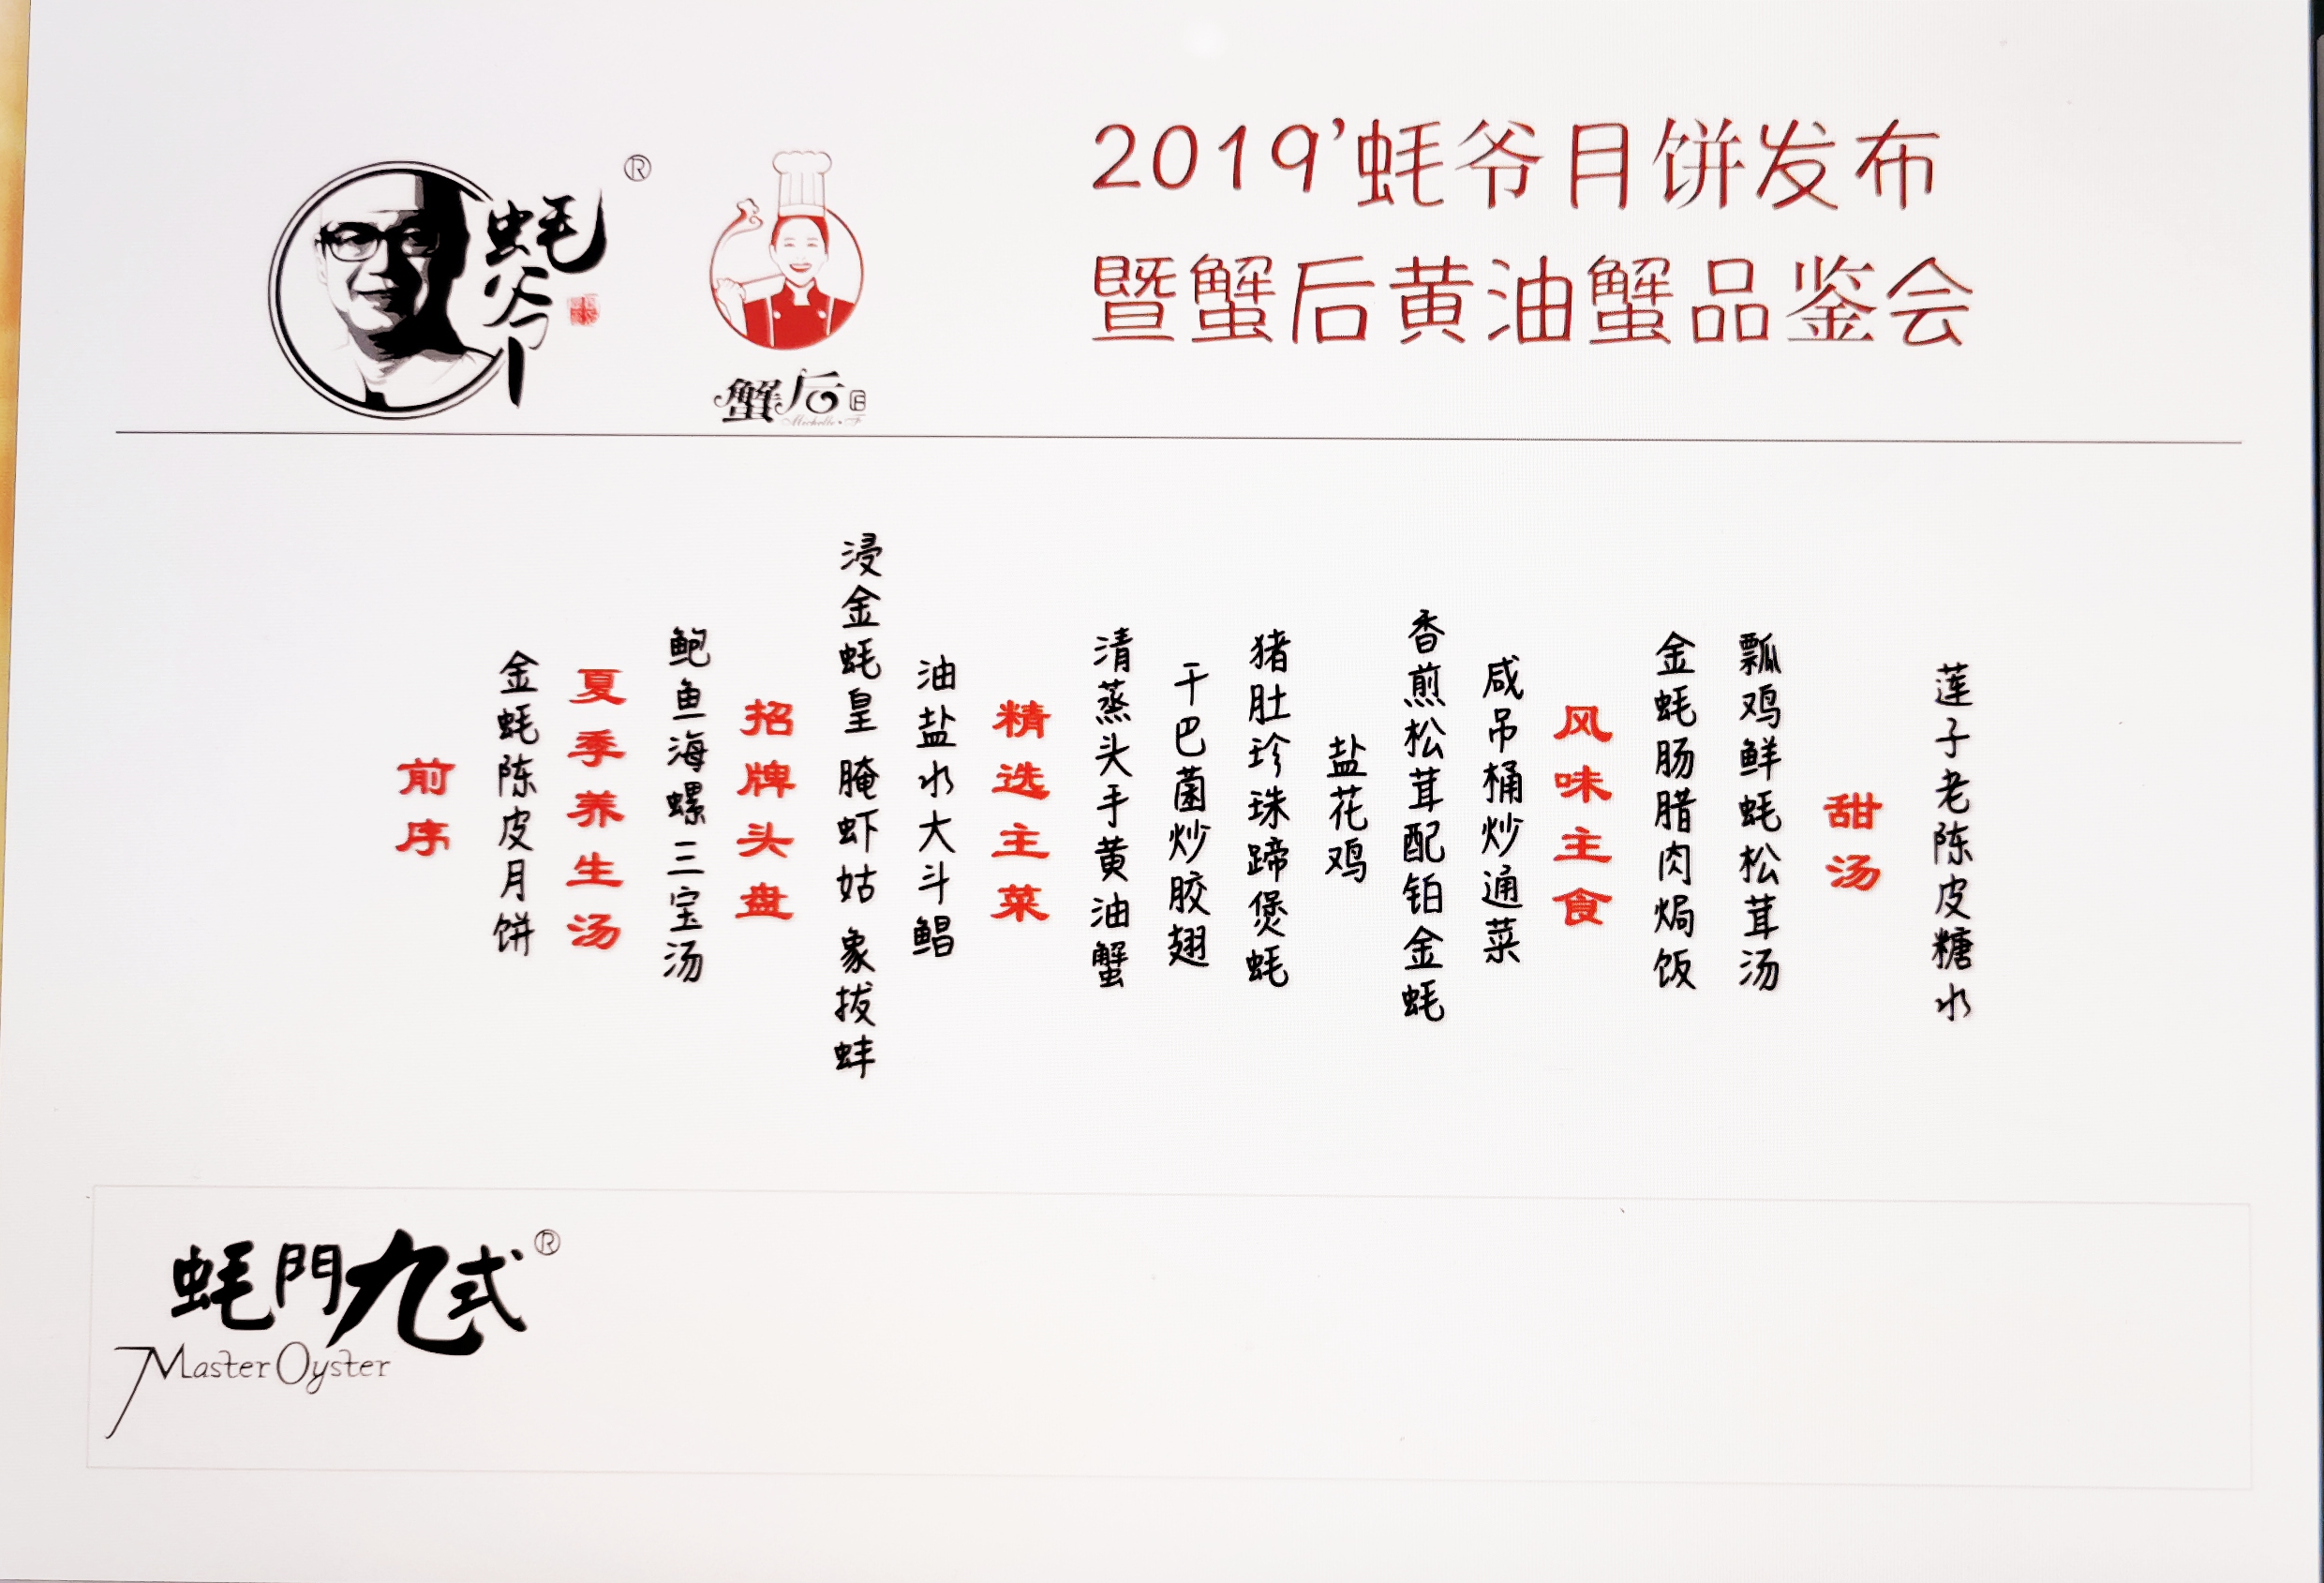 蚝爷®
蟹后
2019'蚝爷月饼发布
暨蟹后黄油蟹品鉴会
前序
金蚝陈皮月饼
夏季养生汤
鲍鱼海螺三宝汤
招牌头盘
浸金蚝皇 腌虾姑 象拔蚌
油盐水大斗鲳
精选主菜
清蒸头手黄油蟹
干巴菌炒胶翅
猪肚珍珠蹄煲蚝
盐花鸡
香煎松茸配铂金蚝
咸吊桶炒通菜
风味主食
金蚝肠腊肉焗饭
瓢鸡鲜蚝松茸汤
甜汤
莲子老陈皮糖水
蚝門九式®
Master Oyster